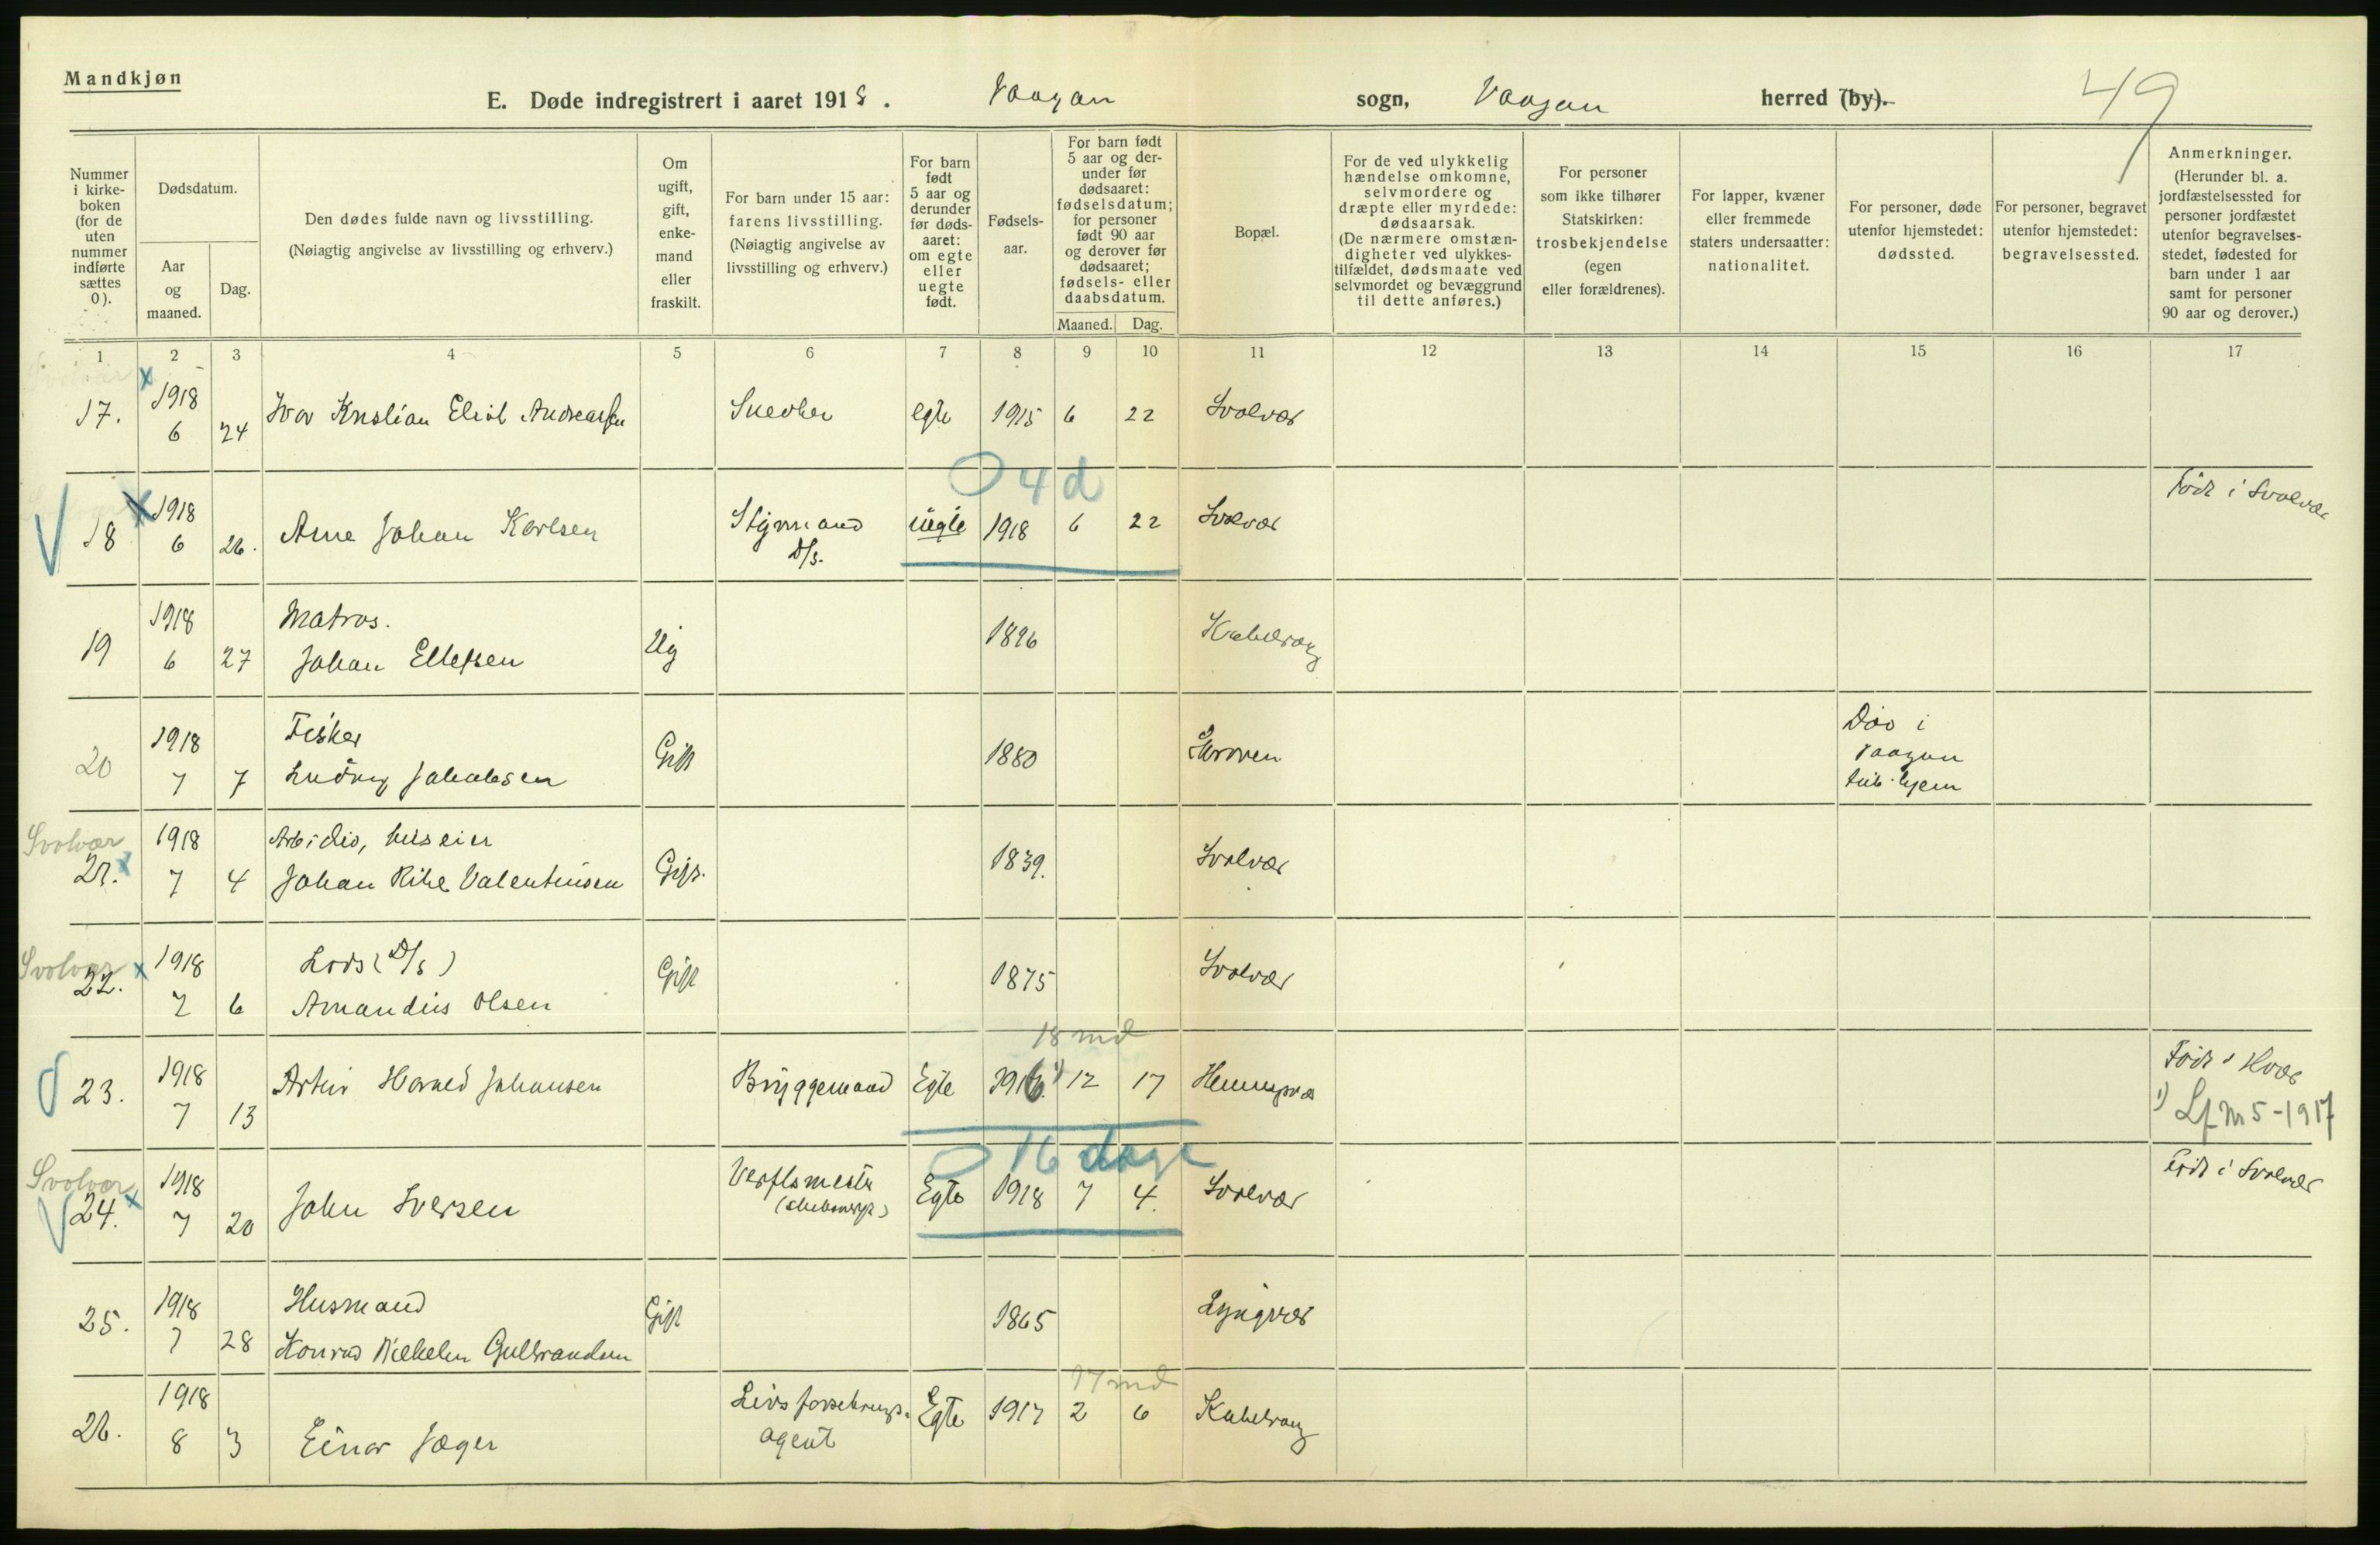 Mandkjøn
E. Døde indregistrert i aaret 1918. Vaagan sogn, Vaagan herred (by).
49
Nummer i kirke- boken (for de uten nummer indførte sættes 0).
Dødsdatum.
Aar og maaned.
Dag.
Den dødes fulde navn og livsstilling.
(Nøiagtig angivelse av livsstilling og erhverv.)
Om ugift, gift, enke- mand eller fraskilt.
For barn under 15 aar: farens livsstilling.
(Nøiagtig angivelse av livsstilling og erhverv.)
For barn født 5 aar og derunder før døds- aaret: om egte eller uegte født.
Fødsels- aar.
For barn født 5 aar og der- under før dødsaaret: fødselsdatum; for personer født 90 aar og derover før dødsaaret; fødsels- eller daabsdatum.
Maaned. Dag.
Bopæl.
For de ved ulykkelig hændelse omkomne, selvmordere og dræpte eller myrdede: dødsaarsak.
(De nærmere omstæn- digheter ved ulykkes- tilfældet, dødsmaate ved selvmordet og bevæggrund til dette anføres.)
For personer som ikke tilhører Statskirken: trosbekjendelse (egen eller forældrenes).
For lapper, kvæner eller fremmede staters undersaatter: nationalitet.
For personer, døde utenfor hjemstedet: dødssted.
For personer, begravet utenfor hjemstedet: begravelsessted.
Anmerkninger.
(Herunder bl. a. jordfæstelsessted for personer jordfæstet utenfor begravelses- stedet, fødested for barn under 1 aar samt for personer 90 aar og derover.)
1 2 3 4 5 6 7 8 9 10 11 12 13 14 15 16 17
Svolvær x
17. 1918 6 24 Ivar Kristian Eliot Andreassen Snedker egte 1915 6 22 Svolvær
0 4 d
18 x 1918 6 26. Arne Johan Karlsen Styrmand D/S. uegte 1918 6 22 Svolvær Født i Svolvær
19 1918 6 27 Matros. Johan Ellefsen Ug 1896 Kabelvaag
20 1918 7 7 Fisker Ludvig Jakobsen Gift 1880 Skroven Død i Vaagan tub. hjem
Svolvær
21. x 1918 7 4 Arbeider, huseier Johan Rike Valentinsen Gift. 1839. Svolvær
Svolvær
22. x 1918 7 6 Lods (D/S) Amandus Olsen Gift 1875 Svolvær
18 md
23. 1918 7 13 Artur Harald Johansen Bryggemand Egte 1916. 1) 12 17 Henningsvær Født i Hvær
1) Lf m 5-1917
0 16 dage
Svolvær
24. x 1918 7 20 John Iversen Verftsmester Egte 1918 7 4. Svolvær Født i Svolvær
25. 1918 7 28 Husmand Konrad Vilhelm Gulbrandsen Gift 1865 Lyngvær
17 md
26. 1918 8 3 Einar Jæger Livsforsikrings- agent Egte 1917 2 6 Kabelvaag